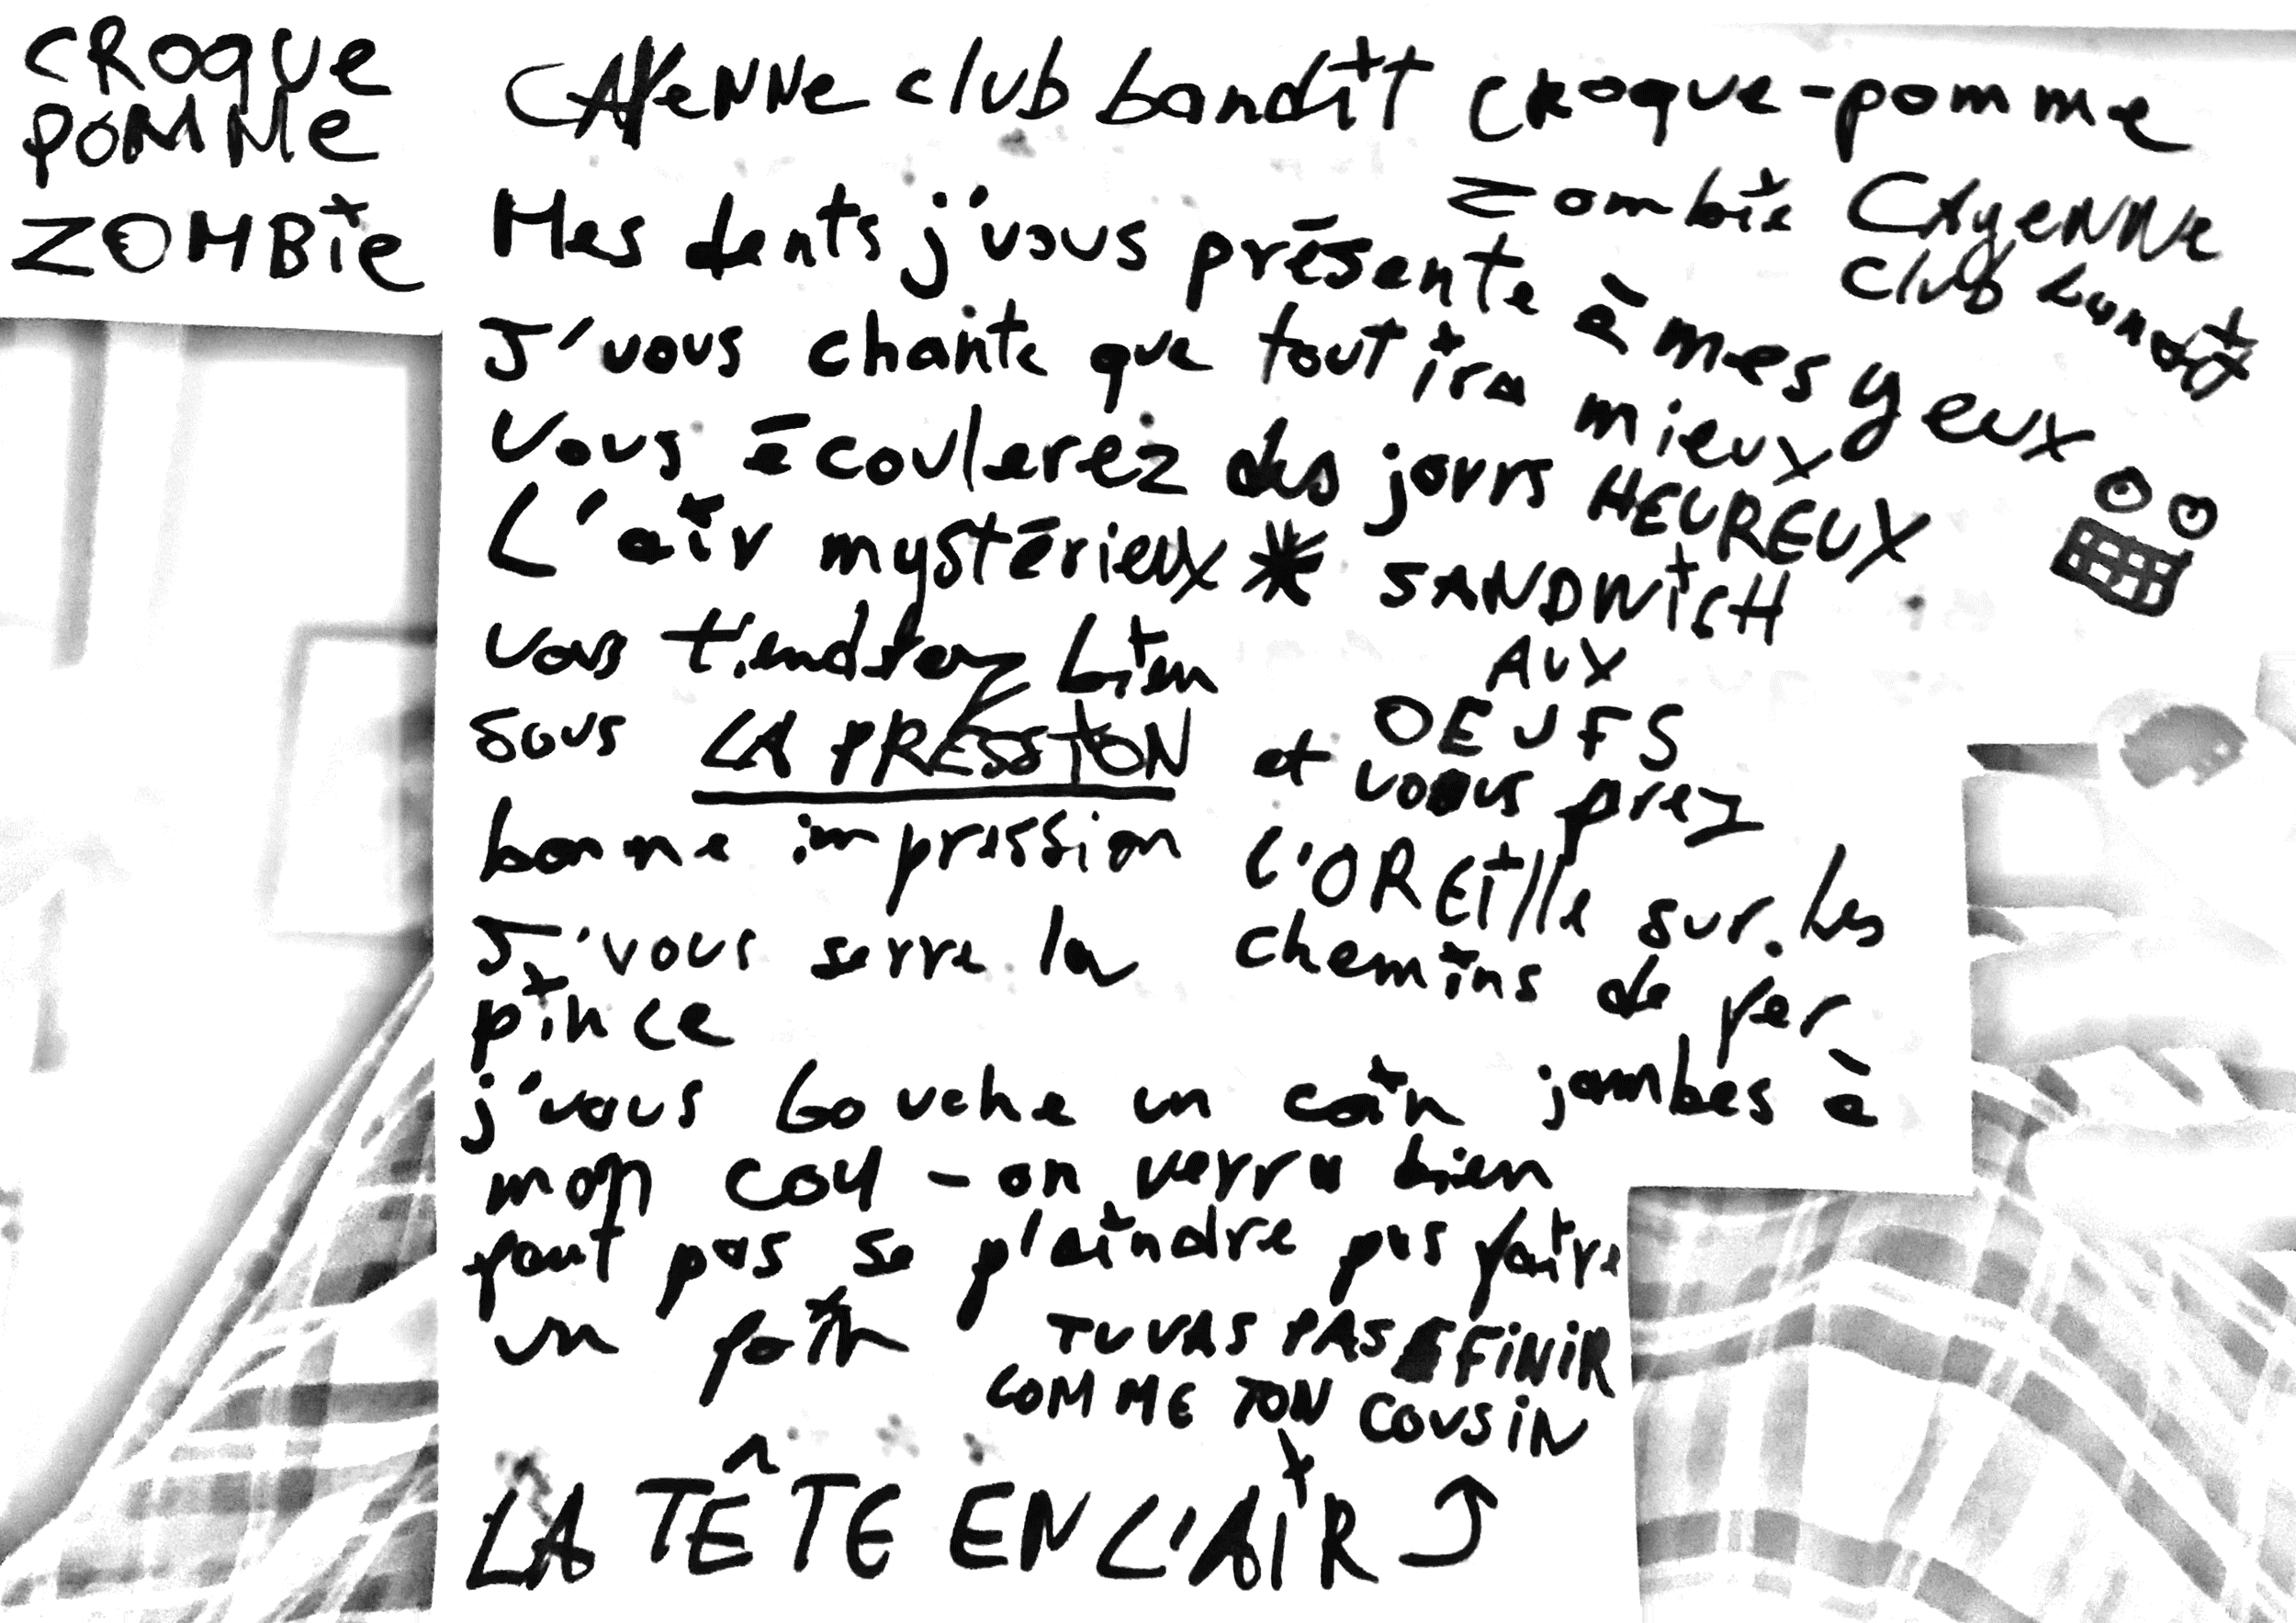 CROQUE
POMME
ZOMBie
CAYeNNe club bandit croque-pomme
zombie CAyeNNe
club bandit
Mes dents j'vous présente à mes yeux
J'vous chante que tout ira mieux
Vous écoulerez des jours HEUREUX
L'air mystérieux * SANDWiCH
AUX
OEUFS
vous tiendrez bien
sous LA PRESSiON
bonne impression
et vous prez
l'OREille sur les
chemins de fer
J'vous serre la
pince
j'vous bouche un coin jambes à
mon cou - on verra bien
faut pas se plaindre pas faire
un foin
TU VAS PAS FiNiR
COMME TON COUSiN
LA TÊTE EN L'AiR